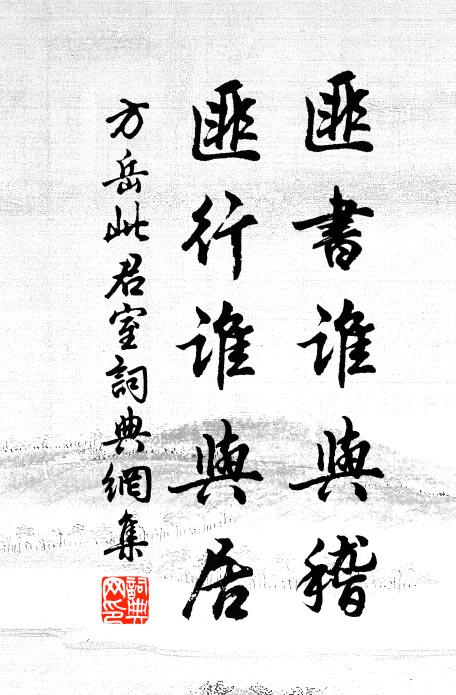 匪書誰與稽
匪行誰與居
方岳此君室詞典網集
詞典网印